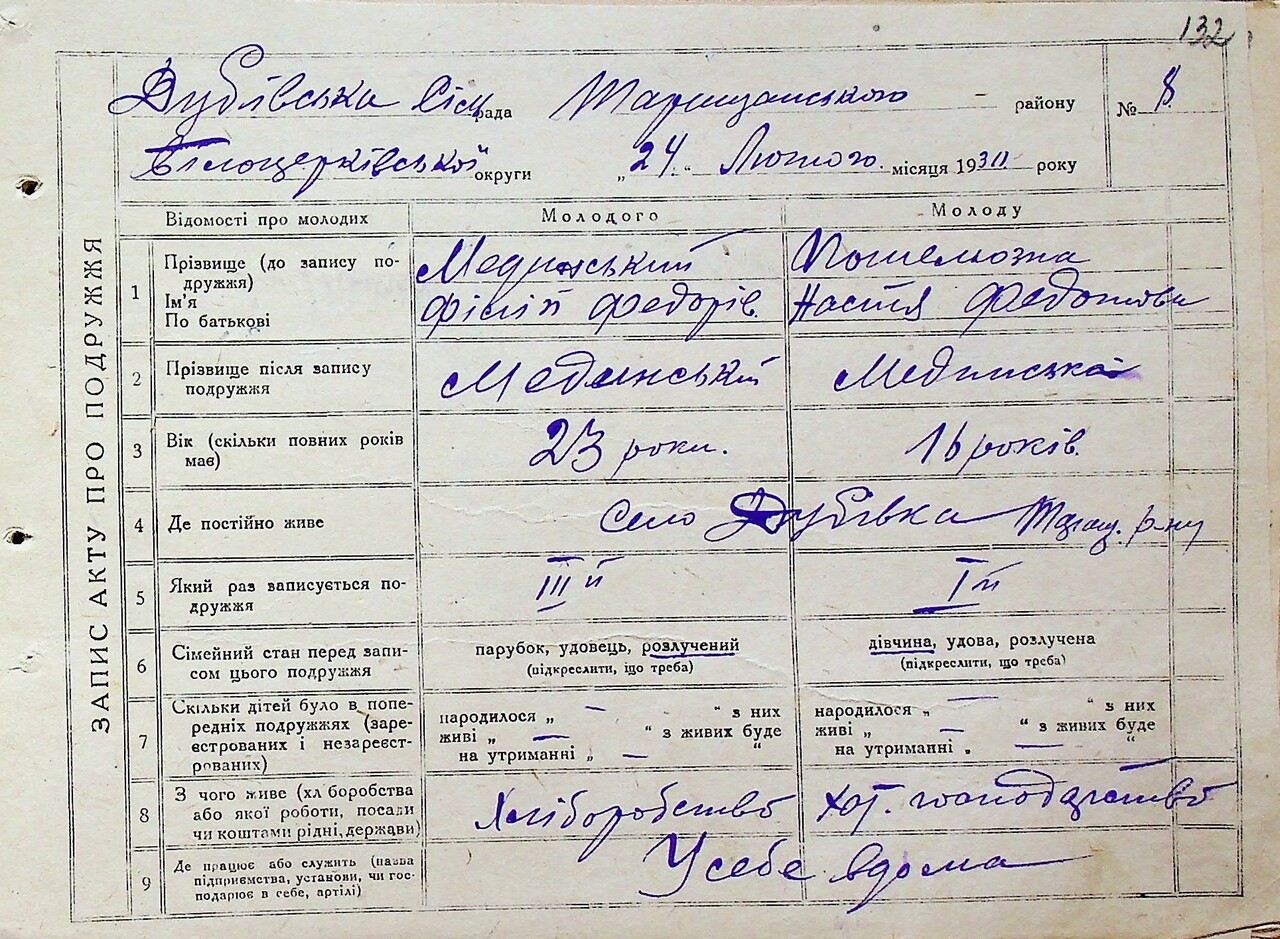 132
Дубівська Сіль рада Таращанського району № 8
Білоцерківської округи „24“ Лютого місяця 1930 року
ЗАПИС АКТУ ПРО ПОДРУЖЖЯ
Відомості про молодих Молодого Молоду
1 Прізвище (до запису по-
дружжя)
Ім'я
По батькові
Мединський
Федорів.
Настя Федотова
2 Прізвище після запису
подружжя
Мединський Мединська
3 Вік (скільки повних років
має)
23 роки. 16 років.
4 Де постійно живе Село Дубівка Таращ. р-ну
5 Який раз записується по-
дружжя
III й I й
6 Сімейний стан перед запи-
сом цього подружжя
парубок, удовець, розлучений
(підкреслити, що треба)
дівчина, удова, розлучена
(підкреслити, що треба)
7 Скільки дітей було в попе-
редніх подружжях (заре-
єстрованих і незареєст-
рованих)
народилося „ — “ з них
живі „ — “ з живих буде
на утриманні „ — “
народилося „ — “ з них
живі „ — “ з живих буде
на утриманні „ — “
8 З чого живе (хліборобства
або якої роботи, посади
чи коштами рідні, держави)
Хліборобство хат. господарство
9 Де працює або служить (назва
підприємства, установи, чи гос-
подарює в себе, артілі)
У себе вдома